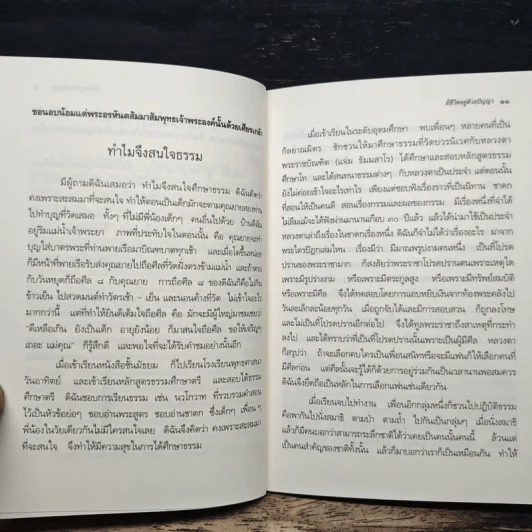 ขอนอบน้อมแด่พระอรหันตสัมมาสัมพุทธเจ้าพระองค์นั้นด้วยเศียรเกล้า
ทำไมจึงสนใจธรรม
มีผู้ถามดิฉันเสมอว่า ทำไมจึงสนใจศึกษาธรรม ดิฉันคิดว่า
คงเพราะสะสมมาที่จะสนใจ ทำให้ตอนเป็นเด็กมักจะตามคุณยายละเทาน
ไปทำบุญที่วัดเสมอ ทั้งๆ ที่ไม่มีพี่น้องเด็กๆ คนอื่นไปด้วย บ้านดิฉัน
อยู่ริมแม่น้ำเจ้าพระยา ภาพที่ประทับใจในตอนนั้น คือ คุณยายจะทำ
บุญใส่บาตรพระที่ท่านพายเรือมาบิณฑบาตทุกเช้า และเมื่อโตขึ้นหน่อย
ก็มีหน้าที่พายเรือรับส่งคุณยายไปถือศีลที่วัดฝั่งตรงข้ามแม่น้ำ และถ้าตรง
กับวันหยุดก็ถือศีล ๘ กับคุณยาย การถือศีล ๘ ของดิฉันก็คือไม่กิน
ข้าวเย็น ไปสวดมนต์ทำวัตรเช้า - เย็น และนอนค้างที่วัด ไม่เข้าใจอะไร
มากกว่านี้ แต่ที่ทำให้ยินดีเต็มใจถือศีล คือ มักจะมีผู้ใหญ่มาชมเชยว่า
"ดีเหลือเกิน ยังเป็นเด็ก อายุยังน้อย ก็มาสนใจถือศีล ขอให้เจริญๆ
เถอะ แม่คุณ" ก็รู้สึกดี และพอใจที่จะได้รับคำชมอย่างนั้นอีก
เมื่อเข้าเรียนหนังสือชั้นมัธยม ก็ไปเรียนโรงเรียนพุทธศาสนา
วันอาทิตย์ และเข้าเรียนหลักสูตรธรรมศึกษาตรี และสอบได้ธรรม
ศึกษาตรี ดิฉันชอบการเรียนธรรม เช่น นวโกวาท ที่รวบรวมคำสอน
ไว้เป็นหัวข้อย่อๆ ชอบอ่านพระสูตร ชอบอ่านชาดก ซึ่งเด็กๆ เพื่อนๆ
พี่น้องในวัยเดียวกันไม่มีใครสนใจเลย ดิฉันจึงคิดว่า คงเพราะสะสมมา
ที่จะสนใจ จึงทำให้มีความสุขในการได้ศึกษาธรรม
มีชีวิตอยู่ด้วยปัญญา ๑๑
เมื่อเข้าเรียนในระดับอุดมศึกษา พบเพื่อนๆ หลายคนที่เป็น
กัลยาณมิตร ชักชวนให้มาศึกษาธรรมที่วัดบวรนิเวศกับหลวงตา
พระราชบัณฑิต (แจ่ม ธัมมสาโร) ได้ศึกษาและสอบหลักสูตรธรรม
ศึกษาโท และได้สนทนาธรรมต่างๆ กับหลวงตาเป็นประจำ แต่ตอนนั้น
ยังไม่ค่อยเข้าใจอะไรเท่าไร เพียงแต่ชอบฟังเรื่องราวที่เป็นนิทาน ชาดก
ที่สอนให้เป็นคนดี สอนเรื่องกรรมและผลของกรรม มีเรื่องหนึ่งที่จำได้
ไม่ลืมแม้จะได้ฟังผ่านมานานเกือบ ๓๐ ปีแล้ว แล้วได้นำมาใช้เป็นประจำ
หลวงตาเล่าถึงเรื่องในชาดกเรื่องหนึ่ง ดิฉันก็จำไม่ได้ว่าเรื่องอะไร มาจาก
พระไตรปิฎกเล่มไหน เรื่องมีว่า มีมาณพรูปงามคนหนึ่ง ที่เป็นที่โปรด
ปรานของพระราชามาก ก็สงสัยว่าพระราชาโปรดปรานตนเพราะเหตุใด
เพราะมีรูปงามงาม หรือเพราะมีตระกูลสูง หรือเพราะมีทรัพย์สมบัติ
หรือเพราะมีศีล จึงได้ทดสอบโดยการแอบหยิบเงินจากท้องพระคลังไป
วันละเล็กละน้อยทุกวัน เมื่อถูกจับได้และมีการสอบสวน ก็ถูกลงโทษ
และไม่เป็นที่โปรดปรานอีกต่อไป จึงได้ทูลพระราชาถึงสาเหตุที่กระทำ
ลงไป และได้ทราบว่าที่เป็นที่โปรดปรานนั้นเพราะเป็นผู้มีศีล หลวงตา
ก็สรุปว่า ถ้าจะเลือกคบใครเป็นเพื่อนสนิทหรือจะมีแฟนก็ให้เลือกคนที่
มีศีลก่อน แต่ศีลนั้นจะรู้ได้ก็ด้วยการอยู่ร่วมกันเป็นเวลานานพอสมควร
ดิฉันจึงยึดถือเป็นหลักในการเลือกแฟนเช่นเดียวกัน
เมื่อเรียนจบไปทำงาน เพื่อนอีกกลุ่มหนึ่งก็ชวนไปปฏิบัติธรรม
คือพากันไปนั่งสมาธิ ตามป่า ตามถ้ำ ไปกันเป็นกลุ่มๆ เมื่อนั่งสมาธิ
แล้วก็มีคนบอกว่าสามารถระลึกชาติได้ว่าเคยเป็นคนนั้นคนนี้ ล้วนแต่
เป็นคนสำคัญของชาติทั้งนั้น แล้วก็มาบอกว่าเราก็เป็นเหมือนกัน ทำให้